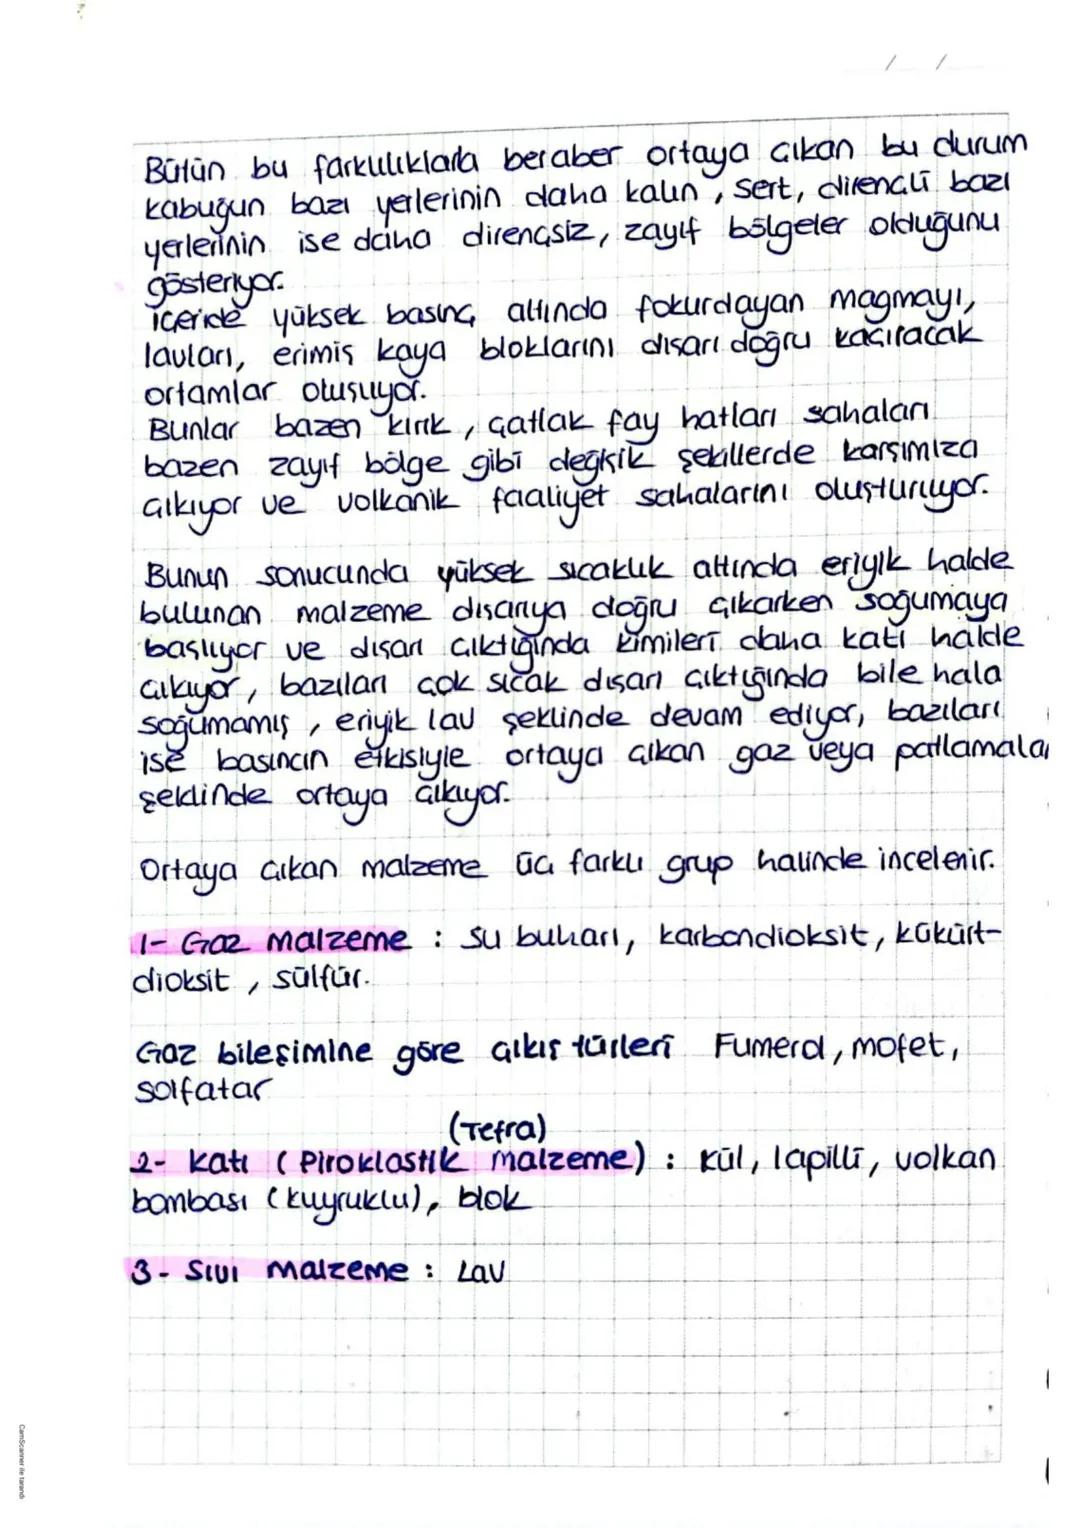 Bütün bu farklılıklarla beraber ortaya çıkan bu durum
kabuğun bazı yerlerinin daha kalın, sert, dirençli bazı
yerlerinin ise daha dirençsiz, zayıf bölgeler olduğunu
gösteriyor.
içeride yüksek basınç altında fokurdayan magmayı,
lavları, erimiş kaya bloklarını dışarı doğru kaçıracak
ortamlar oluşuyor.
Bunlar bazen kırık, çatlak fay hatları sahaları
bazen zayıf bölge gibi değişik şekillerde karşımıza
çıkıyor ve volkanik faaliyet sahalarını oluşturuyor.
Bunun sonucunda yüksek sıcaklık altında eriyik halde
bulunan malzeme dışarıya doğru çıkarken soğumaya
başlıyor ve dışarı çıktığında kimileri daha katı halde
çıkıyor, bazıları çok sıcak dışarı çıktığında bile hala
soğumamış, eriyik lav şeklinde devam ediyor, bazıları
ise basıncın etkisiyle ortaya çıkan gaz veya patlamalar
şeklinde ortaya çıkıyor.
Ortaya çıkan malzeme üç farklı grup halinde incelenir.
1- Gaz malzeme : su buharı, karbondioksit, kükürt-
dioksit, sülfür.
Gaz bileşimine göre çıkış türleri Fumerol, mofet,
solfatar
(Tefra)
2- Katı (Piroklastik malzeme) : kül, lapilli, volkan
bombası (kuyruklu), blok
3- Sıvı malzeme : Lav
CamScanner ile tarandı